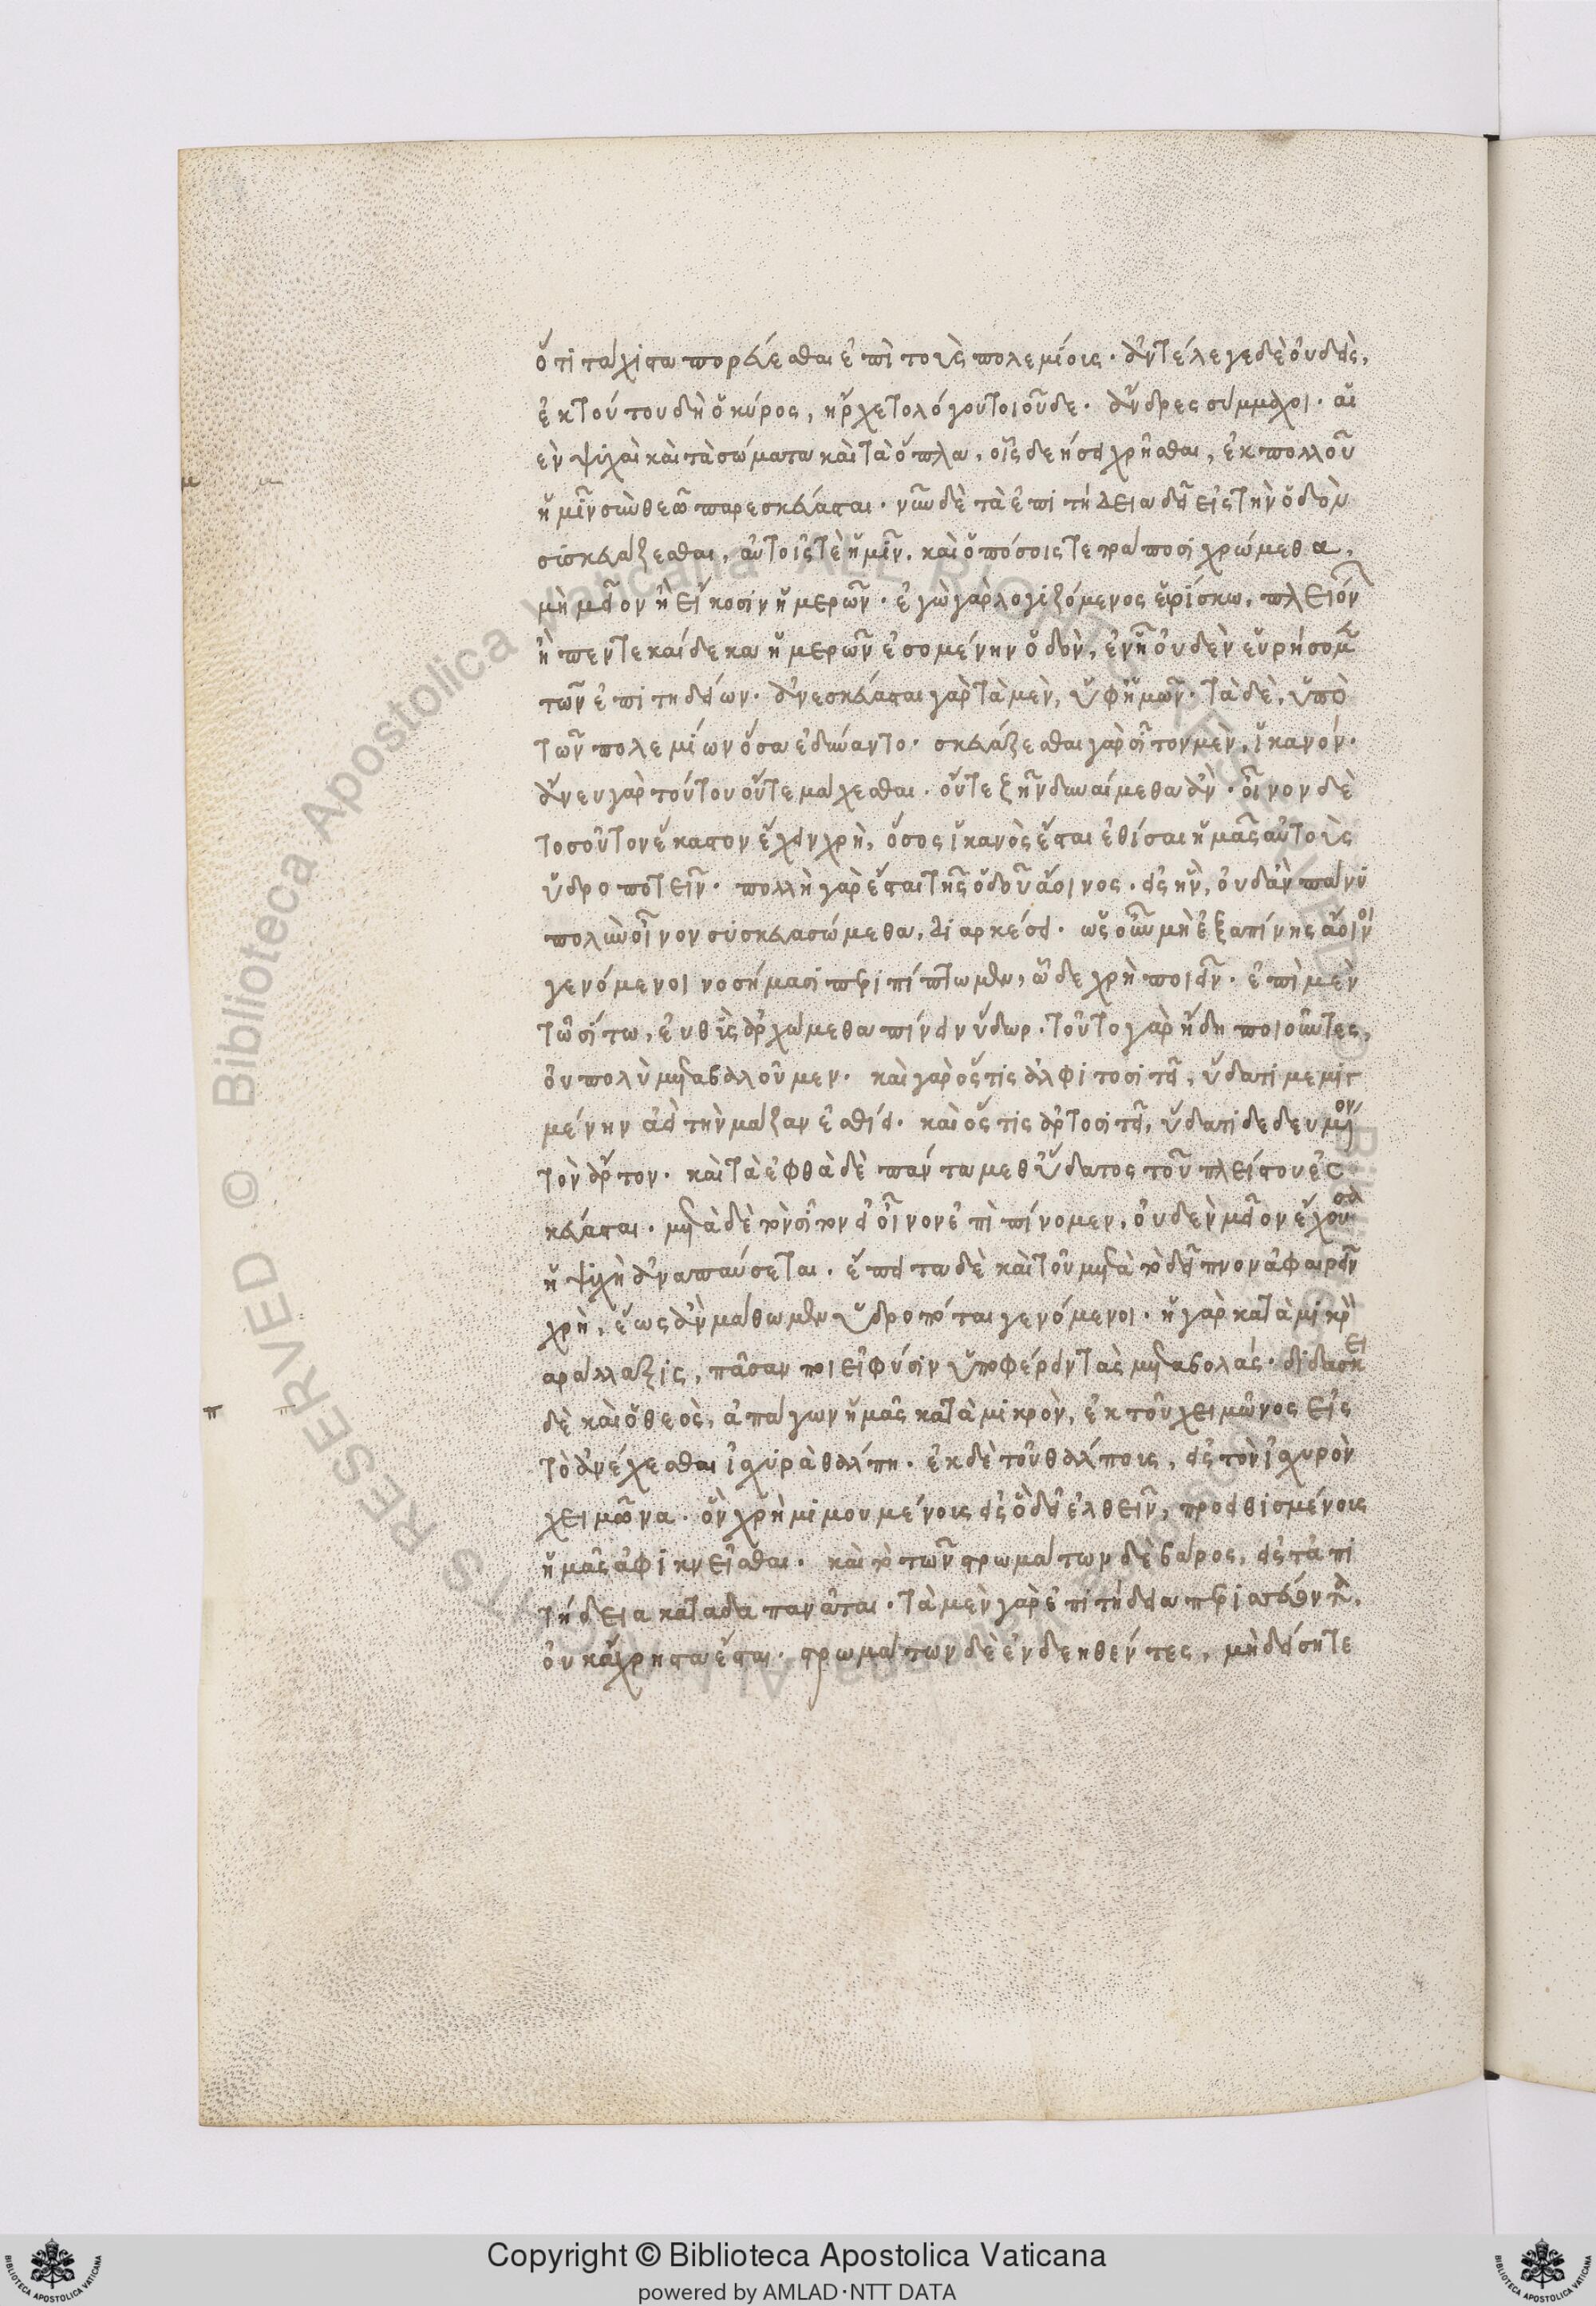 ὅτι τάχιστα πορεύεσθαι ἐπὶ τοὺς πολεμίους. ἀντέλεγε δὲ οὐδείς,
ἐκ τούτου δὴ ὁ κύρος, ἤρχετο λόγου τοιοῦδε. ἄνδρες σύμμαχοι. αἱ
ὲν ψυχαὶ καὶ τὰ σώματα καὶ τὰ ὅπλα, οἷς δεήσει χρῆσθαι, ἐκ πολλοῦ
ἡμῖν σὺν θεῶ παρεσκεύασται. νῦν δὲ τὰ ἐπιτήδεια δεῖ εἰς τὴν ὁδὸν
συσκευάζεσθαι, αὐτοῖς τὲ ἡμῖν, καὶ ὁπόσοις τετράποσι χρώμεθα,
μὴ μεῖον ἢ εἴκοσιν ἡμερῶν. ἐγὼ γὰρ λογιζόμενος εὑρίσκω, πλειόνων
ἢ πεντεκαίδεκα ἡμερῶν ἐσομένην ὁδὸν, ἐν ᾗ οὐδὲν εὑρήσομεν
τῶν ἐπιτηδείων. ἀνεσκεύασται γὰρ τὰ μὲν, ὑφ ἡμῶν. τὰ δὲ, ὑπὸ
τῶν πολεμίων ὅσα ἐδύναντο. σκευάζεσθαι γὰρ σῖτον μὲν, ἱκανόν.
ἄνευ γὰρ τούτου οὔτε μάχεσθαι. οὔτε ζῆν δυναίμεθα ἂν. οἶνον δὲ
τοσοῦτον ἕκαστον ἔχειν χρὴ, ὅσος ἱκανὸς ἔσται ἐθίσαι ἡμᾶς αὐτοὺς
ὑδροποτεῖν. πολλὴ γὰρ ἔσται τῆς ὁδοῦ ἄοινος. εἰς ἣν, οὐδ ἂν πάνυ
πολὺν οἶνον συσκευασώμεθα, διαρκέσει. ὡς οὖν μὴ ἐξαπίνης ἄοινοι
γενόμενοι νοσήμασι περιπίπτωμεν, ὧδε χρὴ ποιεῖν. ἐπὶ μὲν
τῶ σίτω, εὐθὺς ἀρχώμεθα πίνειν ὕδωρ. τοῦτο γὰρ ἤδη ποιοῦντες,
οὐ πολὺ μεταβαλοῦμεν. καὶ γὰρ ὅστις ἀλφιτοσιτεῖ, ὕδατι μεμιγ
μένην ἀεὶ τὴν μάζαν ἐσθίει. καὶ ὅστις ἀρτοσιτεῖ, ὕδατι δεδευμένον
τὸν ἄρτον. καὶ τὰ ἐφθὰ δὲ πάντα μεθ ὕδατος τοῦ πλείστου ἐσ
κεύασται. μετὰ δὲ τὸν σῖτον εἰ οἶνον ἐπιπίνομεν, οὐδὲν μεῖον ἔχουσα
ἡ ψυχὴ ἀναπαύσεται. ἔπειτα δὲ καὶ τοῦ μετὰ τὸ δεῖπνον ἀφαιρεῖν
χρὴ, ἕως ἂν μάθωμεν ὑδροπόται γενόμενοι. ἡ γὰρ κατὰ μικρὸν
αράλλαξις, πᾶσαν ποιεῖ φύσιν ὑποφέρειν τὰς μεταβολάς. διδάσκει
δὲ καὶ ὁ θεὸς, ἀπάγων ἡμᾶς κατὰ μικρὸν, ἐκ τοῦ χειμῶνος εἰς
τὸ ἀνέχεσθαι ἰσχυρὰ θάλπη. ἐκ δὲ τοῦ θάλπους, εἰς τὸν ἰσχυρὸν
χειμῶνα. ὃν χρὴ μιμουμένους εἰς ὃ δεῖ ἐλθεῖν, προειθισμένους
ἡμᾶς ἀφικνεῖσθαι. καὶ τὸ τῶν στρωμάτων δὲ βάρος, εἰς τἀπι
τήδεια καταδαπανᾶται. τὰ μὲν γὰρ ἐπιτήδεια περισσεύοντα,
οὐκ ἄχρηστα ἔσται. στρωμάτων δὲ ἐνδεηθέντες, μὴ δείσητε
Copyright © Biblioteca Apostolica Vaticana
powered by AMLAD·NTT DATA